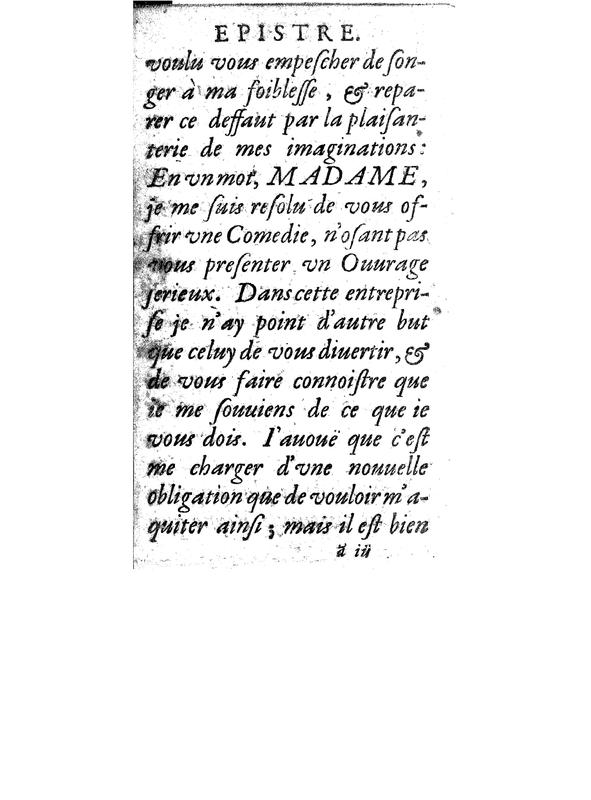 EPISTRE.
voulu vous empeſcher de ſon-
ger à ma foibleſſe, & repa-
rer ce deffaut par la plaiſan-
terie de mes imaginations:
En vn mot, MADAME,
je me ſuis reſolu de vous of-
frir vne Comedie, n'oſant pas
vous preſenter vn Ouurage
ſerieux. Dans cette entrepri-
ſe je n'ay point d'autre but
que celuy de vous diuertir, &
de vous faire connoiſtre que
ie me ſouuiens de ce que ie
vous dois. I'auouë que c'eſt
me charger d'vne nouuelle
obligation que de vouloir m'a-
quiter ainſi; mais il eſt bien
ã iij